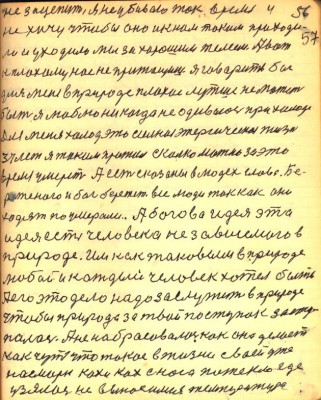 56
не зацепит, А не убивало ток время и
57
не хочу чтобы оно к нам таким приходи-
ли и уходило мы за хорошим телом. А вот
к плохому нас не притащишь Я говорить бы
для меня в природе плохое лучше не может
быть я люблю никогда не одиваюсь при холоде
Для меня холод это сильная энергическа
я таким против Сколко можно за это
время умереть А есть сказаны в людех слова. Бе-
реженого и бог бережет все люди так как они
ходят по умерали. А богова идея эта
идея есть человека независимого в
природе. Им как таковыми в природе
любой и каждый человек хотел быть
А его это дело надо заслужить в природе
чтобы природа за твой поступок засту-
палась А не набрасовалась как она делает
как чуть что такое в жизни своей уже
насморк кахи как с носа потекло где
взялась не выносимая температура